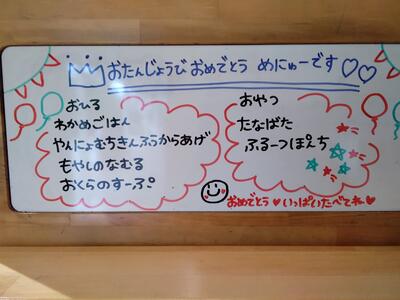 おたんじょうび おめでとう めにゅーです♡♡
おひる
わかめごはん
やんにょむちきんふうからあげ
もやしのなむる
おくらのすーぷ
おやつ
たなばた
ふるーつぽんち
おめでとう♥いっぱいたべてね♥